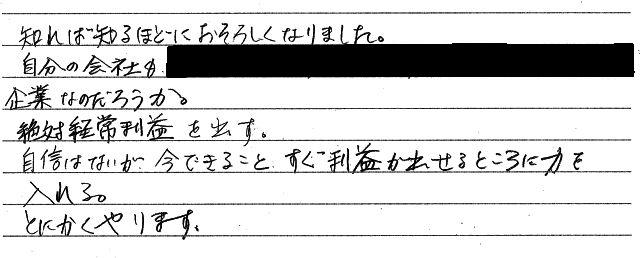 知れば知るほどにおそろしくなりました。
自分の会社が
企業なのだろうか。
絶対経常利益を出す。
自信はないが今できること、すぐ利益が出せるところに力を
入れる。
とにかくやります。